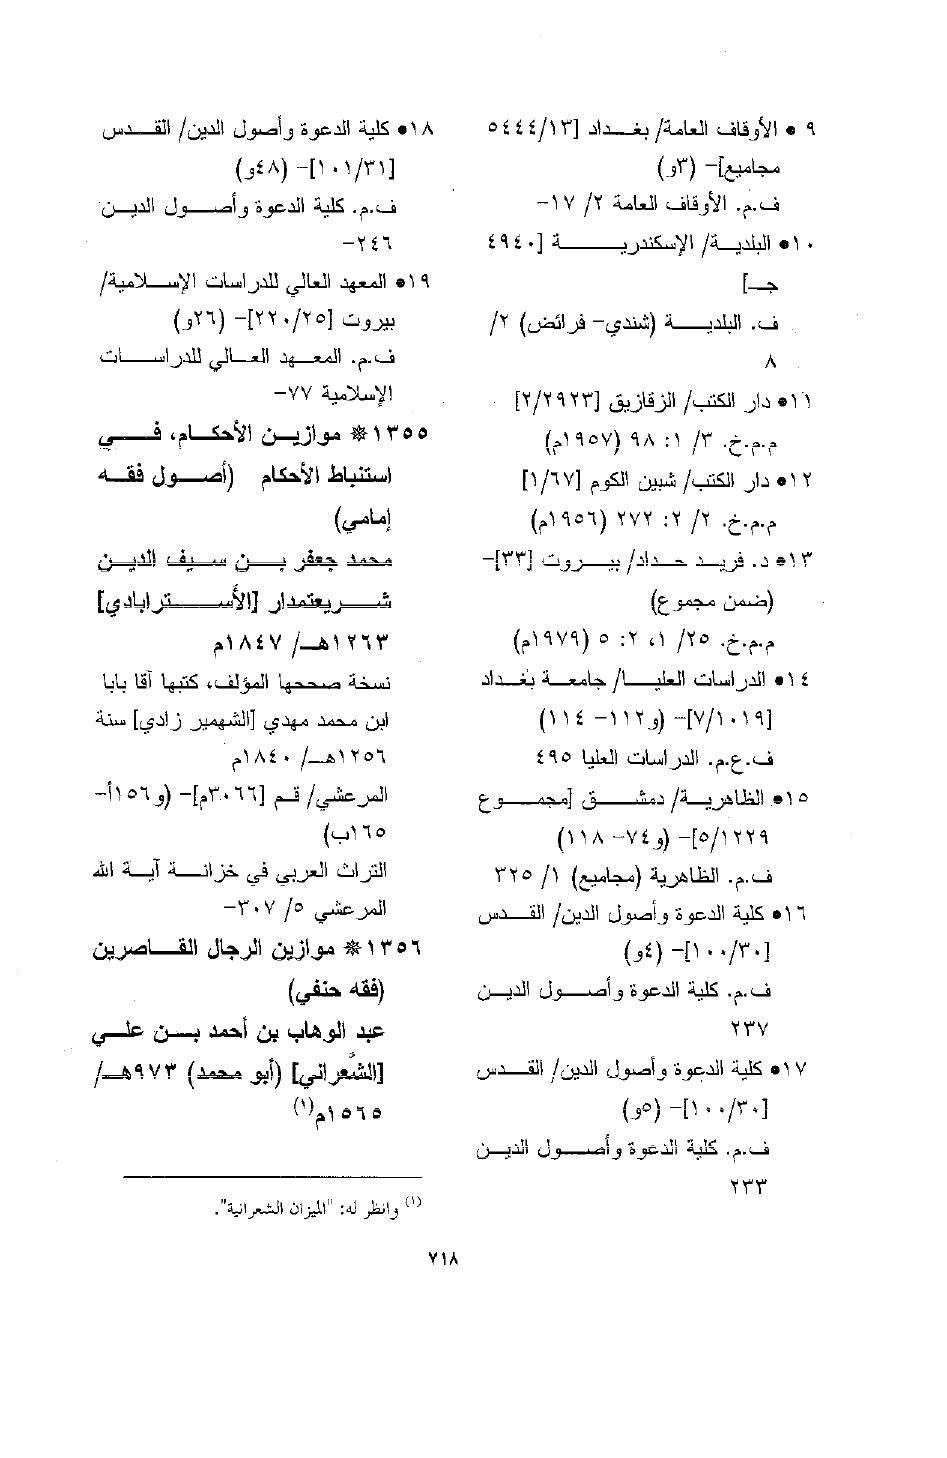 ٩ • الأوقاف العامة/ بغداد [٥٤٤٤/١٣
مجاميع]- (٣و)
ف.م. الأوقاف العامة ٢/ ١٧-
١٠• البلدية/ الإسكندرية [٤٩٤٠
جـ]
ف. البلدية (شندي- فرائض) ٢/
٨
١١• دار الكتب/ الزقازيق [٢/٢٩٢٣]
م.م.خ. ٣/ ١: ٩٨ (١٩٥٧م)
١٢• دار الكتب/ شبين الكوم [١/٦٧]
م.م.خ. ٢/ ٢: ٢٧٢ (١٩٥٦م)
١٣• د. فريد حداد/ بيروت [٣٣]-
(ضمن مجموع)
م.م.خ. ٢٥/ ١، ٢: ٥ (١٩٧٩م)
١٤• الدراسات العليا/ جامعة بغداد
[٧/١٠١٩]- (و١١٢- ١١٤)
ف.ع.م. الدراسات العليا ٤٩٥
١٥• الظاهرية/ دمشق [مجموع
٥/١٢٢٩]- (و٧٤- ١١٨)
ف.م. الظاهرية (مجاميع) ١/ ٣٢٥
١٦• كلية الدعوة وأصول الدين/ القدس
[١٠٠/٣٠]- (٤و)
ف.م. كلية الدعوة وأصول الدين
٢٣٧
١٧• كلية الدعوة وأصول الدين/ القدس
[١٠٠/٣٠]- (٥و)
ف.م. كلية الدعوة وأصول الدين
٢٣٣
١٨• كلية الدعوة وأصول الدين/ القدس
[١٠١/٣١]- (٤٨و)
ف.م. كلية الدعوة وأصول الدين
٢٤٦-
١٩• المعهد العالي للدراسات الإسلامية/
بيروت [٢٢٠/٢٥]- (٢٦و)
ف.م. المعهد العالي للدراسات
الإسلامية ٧٧-
١٣٥٥* موازين الأحكام، في
استنباط الأحكام (أصول فقه
إمامي)
محمد جعفر بن سيف الدين
شريعتمدار [الأسترابادي]
١٢٦٣هـ/ ١٨٤٧م
نسخة صححها المؤلف، كتبها آقا بابا
ابن محمد مهدي [الشهمير زادي] سنة
١٢٥٦هـ/ ١٨٤٠م
المرعشي/ قم [٣٠٦٦م]- (و١٥٦أ-
١٦٥ب)
التراث العربي في خزانة آية الله
المرعشي ٥/ ٣٠٧-
١٣٥٦* موازين الرجال القاصرين
(فقه حنفي)
عبد الوهاب بن أحمد بن علي
[الشُّعراني] (أبو محمد) ٩٧٣هـ/
١٥٦٥م(١)
(١) وانظر له: "الميزان الشعرانية".
٧١٨